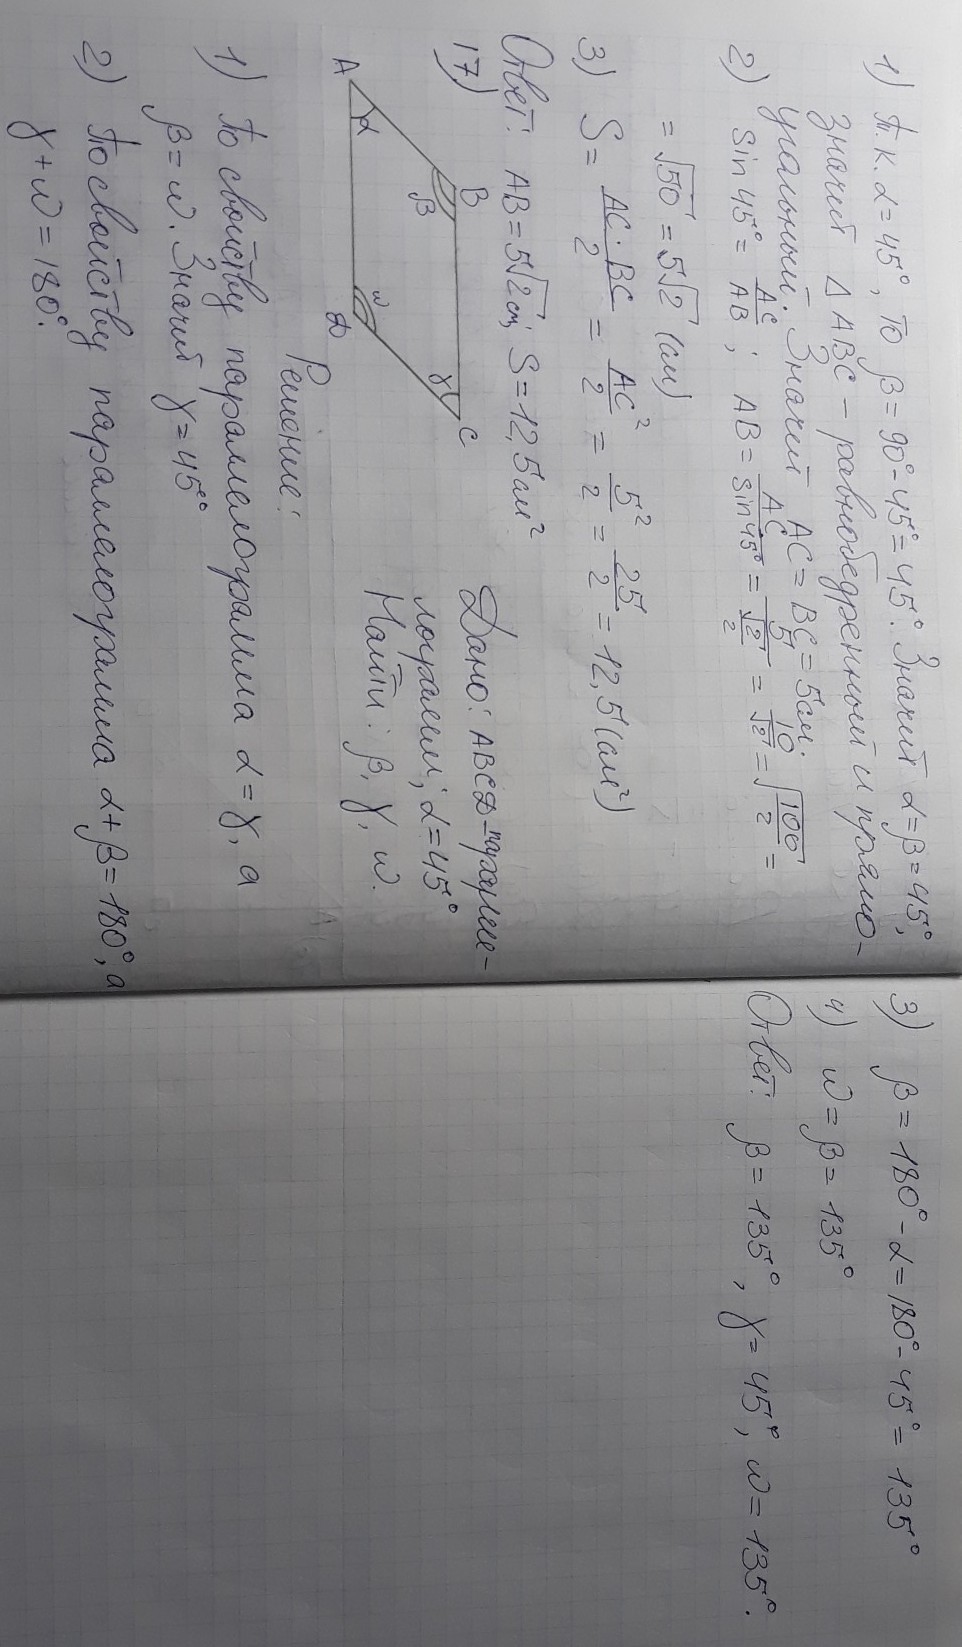 1) Т.к. α=45°, то β=90°-45°=45°. Значит α=β=45°,
значит Δ ABC – равнобедренный и прямо-
угольный. Значит AC=BC=5см.
2) sin45°=AC/AB; AB=AC/sin45°=5/(√2/2)=10/√2=√(100/2)=
=√50=5√2 (см)
3) S=(AC·BC)/2=AC²/2=5²/2=25/2=12,5(см²)
Ответ: AB=5√2см; S=12,5см²
17)
A
B
C
D
α
β
γ
ω
Дано: ABCD–паралле-
лограмм; α=45°
Найти: β, γ, ω.
Решение:
1) По свойству параллелограмма α=γ, а
β=ω. Значит γ=45°
2) По свойству параллелограмма α+β=180°, а
γ+ω=180°.
3) β=180°-α=180°-45°=135°
4) ω=β=135°
Ответ: β=135°, γ=45°, ω=135°.